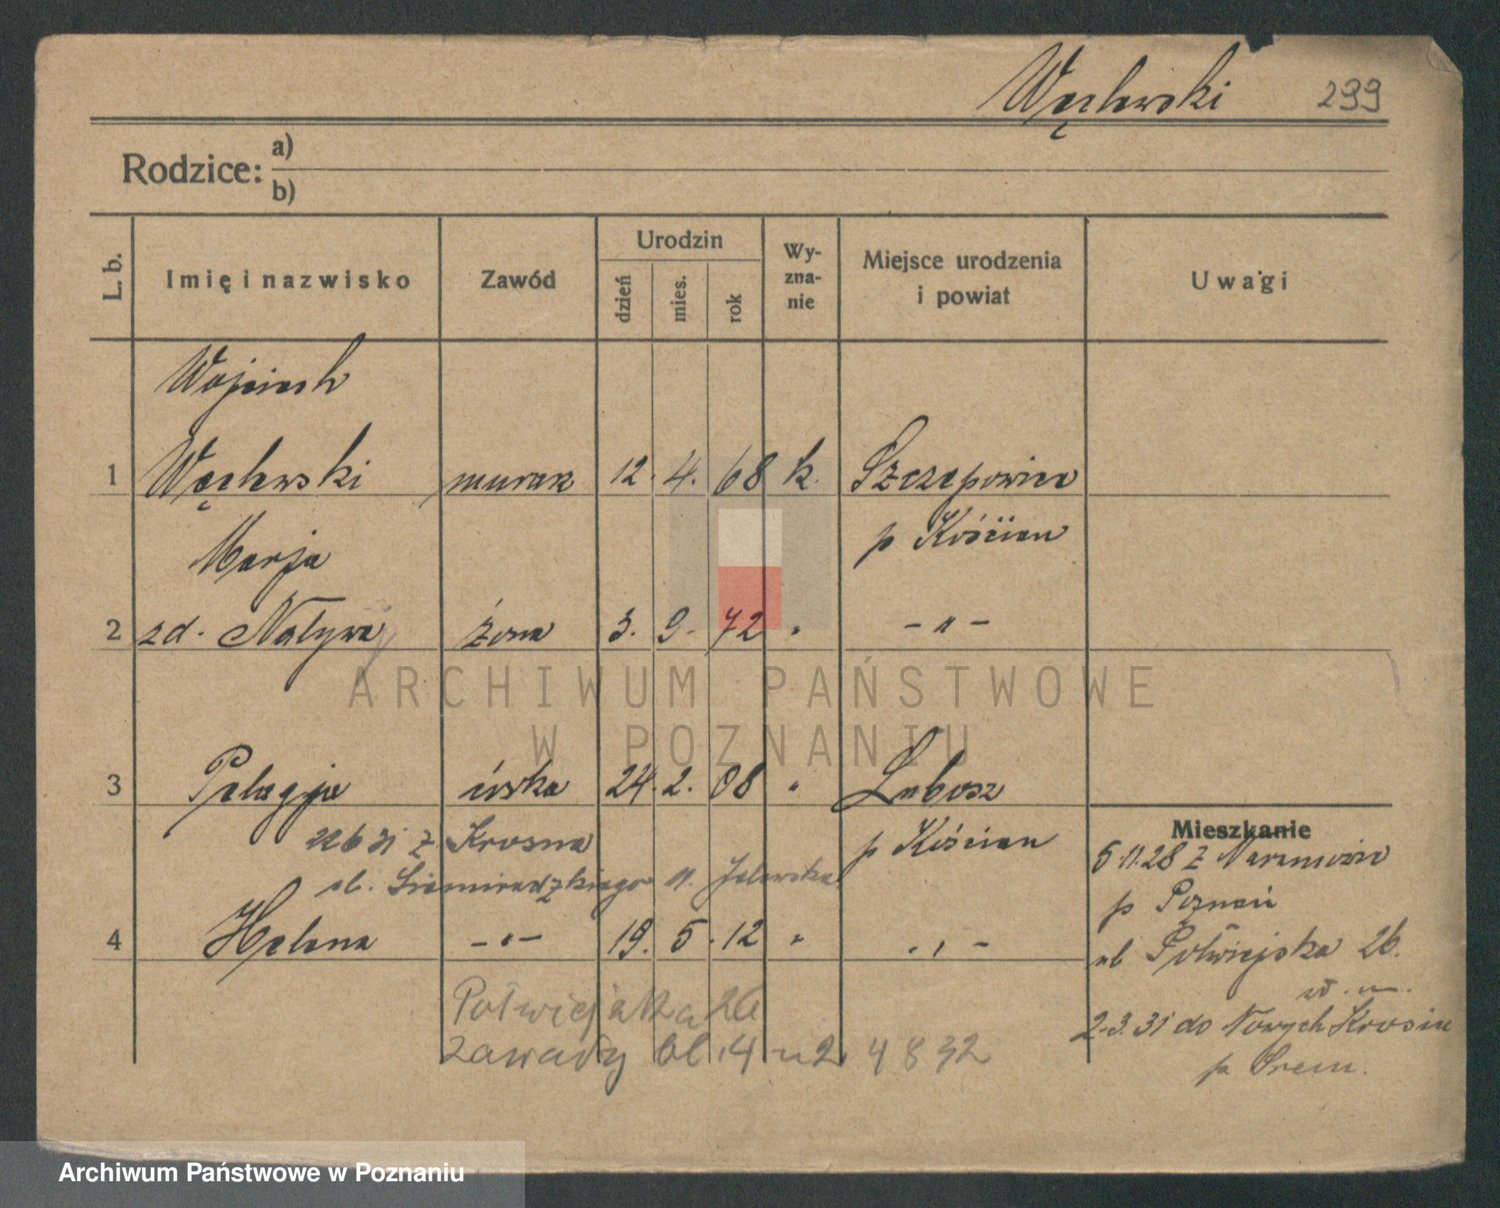 Węclewski 299
Rodzice: a)
b)
L. b. Imię i nazwisko Zawód Urodzin dzień mies. rok Wy-zna-nie Miejsce urodzenia i powiat Uwagi
Wojciech
1 Węclewski murarz 12. 4. 68 k. Szczepowice
Marja p Kościan
2 zd. Nożywa żona 3. 9. 72 " - " -
ARCHIWUM PAŃSTWOWE
W POZNANIU
3 Pelagja córka 24. 2. 08 " Lubosz
31 z Krosna p Kościan
Mieszkanie
5.11.28 z
ul. Siemiradzkiego
p Poznań
4 Helena - " - 19. 5. 12 " - " -
ul Półwiejska 26.
Półwiejska 26
2.3.31 do Nowych Krosin
Zawady bl. 4 2. 4832
p Śrem.
Archiwum Państwowe w Poznaniu